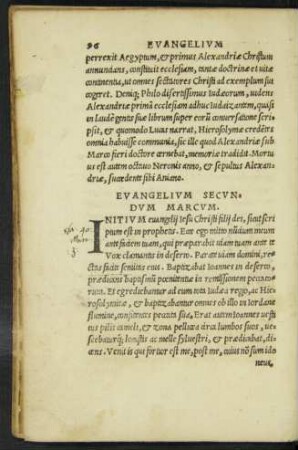 96 EVANGELIVM
perrexit Aegyptum, & primus Alexandriæ Christum
annuncians, constituit ecclesiam, tantæ doctrinæ et vitæ
continentiæ, ut omnes sectatores Christi ad exemplum sui
cogeret. Deniq; Philo disertissimus Iudæorum, uidens
Alexandriæ primã ecclesiam adhuc Iudaizantem, quasi
in Laudẽ gentis suæ librum super eorũ conuersatione scri
psit, & quomodo Lucas narrat, Hierosolymæ credẽtes
omnia habuisse communia, sic ille quod Alexandriæ sub
Marco fieri doctore cernebat, memoriæ tradidit. Mortu
us est autem octauo Neronis anno, & sepultus Alexan
driæ, succedente sibi Aniano.
EVANGELIVM SECVN
DVM MARCVM.
INITIVM euangelij Iesu Christi filij dei, sicut scri
ptum est in prophetis. Ecce ego mitto nũcium meum
ante faciem tuam, qui præparabit uiam tuam ante te
Vox clamantis in deserto. Parate uiam domini, re
ctas facite semitas eius. Baptizabat Ioannes in deserto,
prædicans baptismũ pœnitentiæ in remissionem peccato
rum. Et egrediebantur ad eum tota Iudææ regio, ac Hie
rosolymitæ, & baptizabantur omnes ab illo in Iordane
flumine, confitentes peccata sua. Erat autem Ioannes uesti
tus pilis cameli, & zona pellicea circa lumbos suos, ue
scebaturq; locustis ac melle syluestri, & prædicabat, di
cens. Venit is qui fortior est me, post me, cuius nõ sum ido
neus,